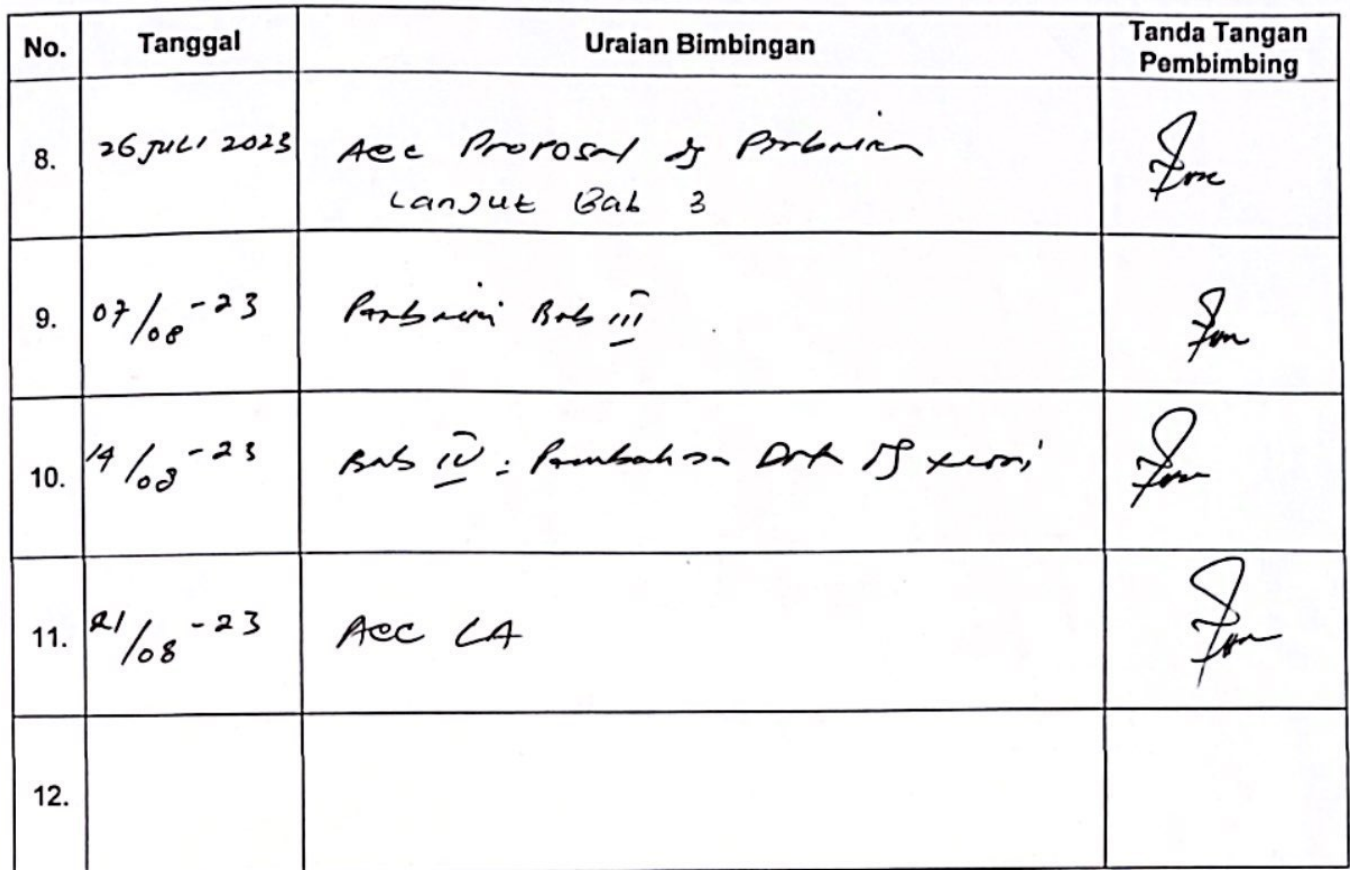 No. Tanggal Uraian Bimbingan Tanda Tangan
Pembimbing
8. 26 JULI 2023 Acc Proposal dg Perbaikan
Lanjut Bab 3
9. 07/08-23 Perbaiki Bab III
10. 14/08-23 Bab IV : Pembahasan Data dg
11. 21/08-23 Acc LA
12.